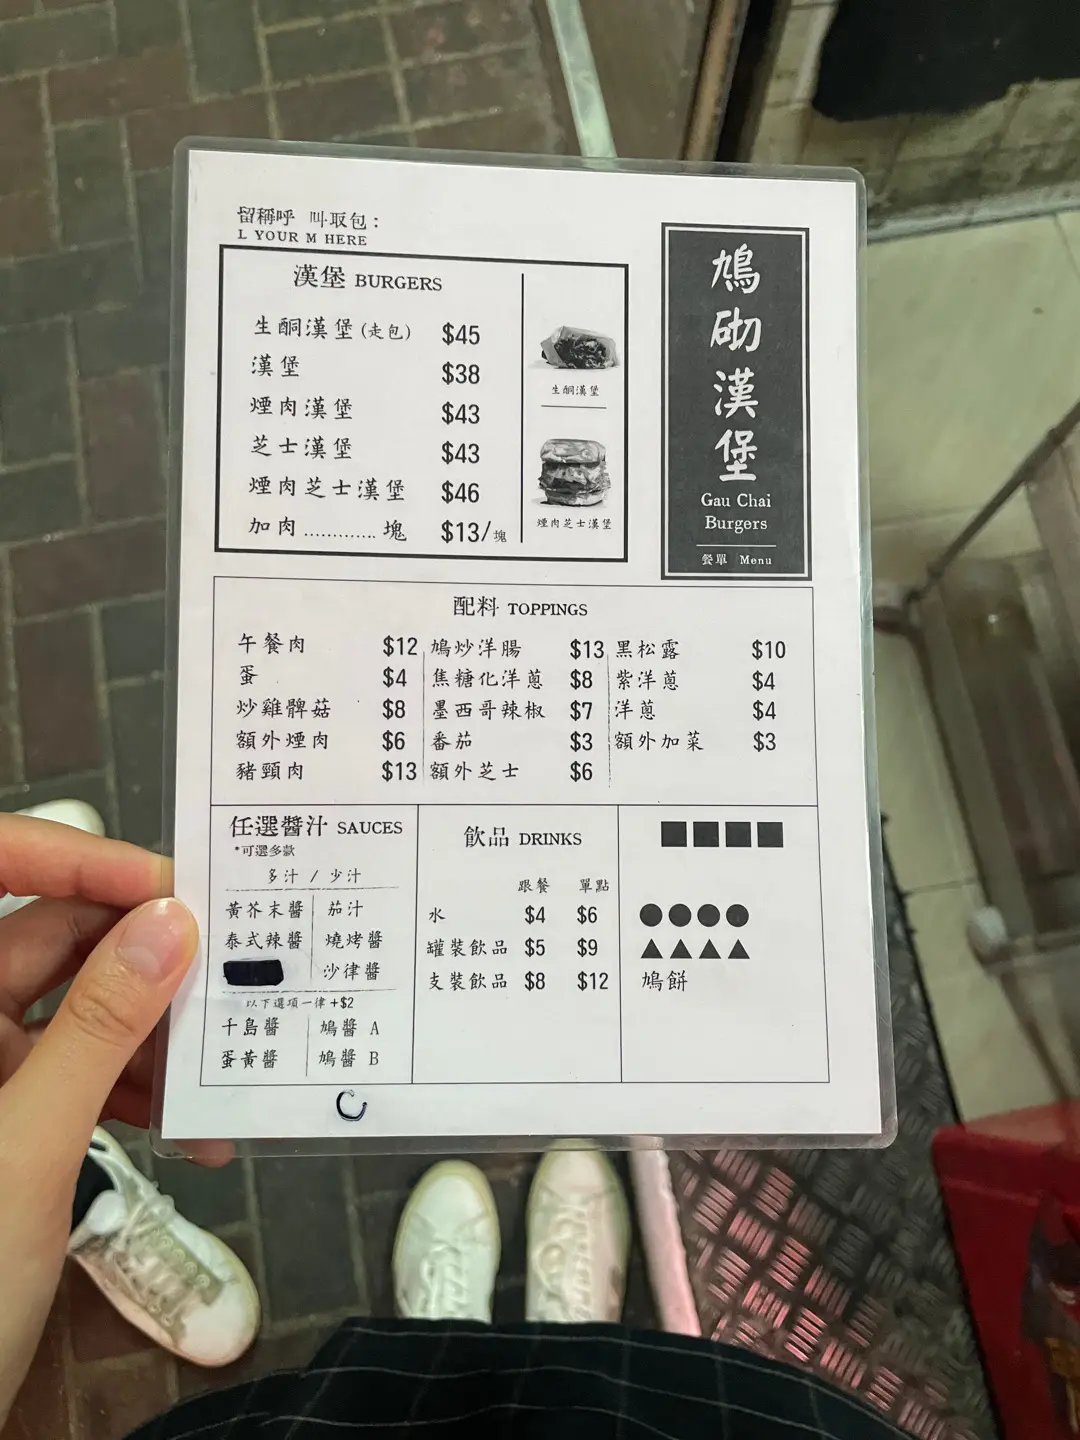 留稱呼 叫取包：
L YOUR M HERE
漢堡 BURGERS
生酮漢堡(走包) $45
漢堡 $38
煙肉漢堡 $43
芝士漢堡 $43
煙肉芝士漢堡 $46
加肉.............塊 $13/塊
生酮漢堡
煙肉芝士漢堡
鳩砌漢堡
Gau Chai
Burgers
餐單 Menu
配料 TOPPINGS
午餐肉 $12
蛋 $4
炒雞髀菇 $8
額外煙肉 $6
豬頸肉 $13
鳩炒洋腸 $13
焦糖化洋蔥 $8
墨西哥辣椒 $7
番茄 $3
額外芝士 $6
黑松露 $10
紫洋蔥 $4
洋蔥 $4
額外加菜 $3
任選醬汁 SAUCES
*可選多款
多汁 / 少汁
黃芥末醬 茄汁
泰式辣醬 燒烤醬
沙律醬
以下選項一律+$2
千島醬 鳩醬 A
蛋黃醬 鳩醬 B
C
飲品 DRINKS
跟餐 單點
水 $4 $6
罐裝飲品 $5 $9
支裝飲品 $8 $12
■■■■
●●●●
▲▲▲▲
鳩餅